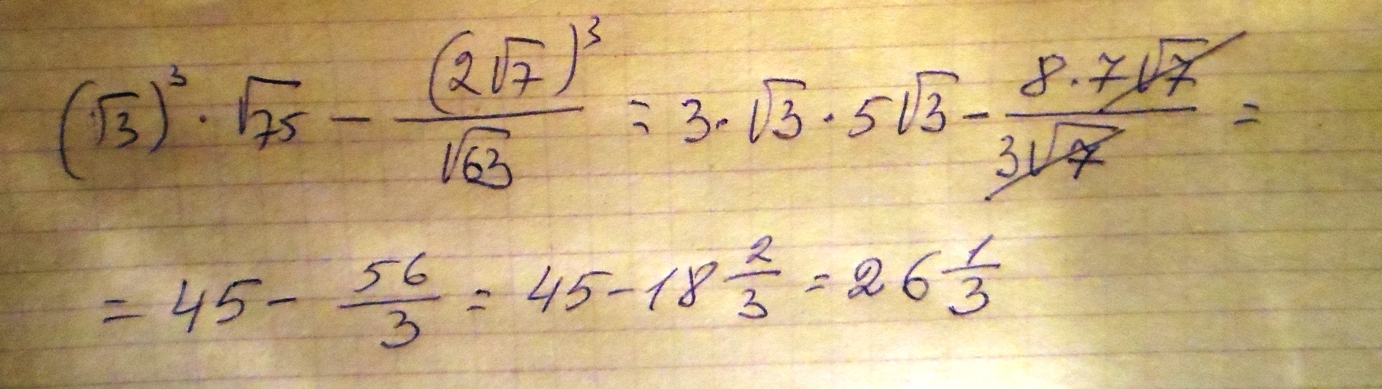 (√3)³ · √75 − (2√7)³/√63 = 3·√3 · 5√3 − 8·7√7/3√7 =
= 45 − 56/3 = 45 − 18 2/3 = 26 1/3